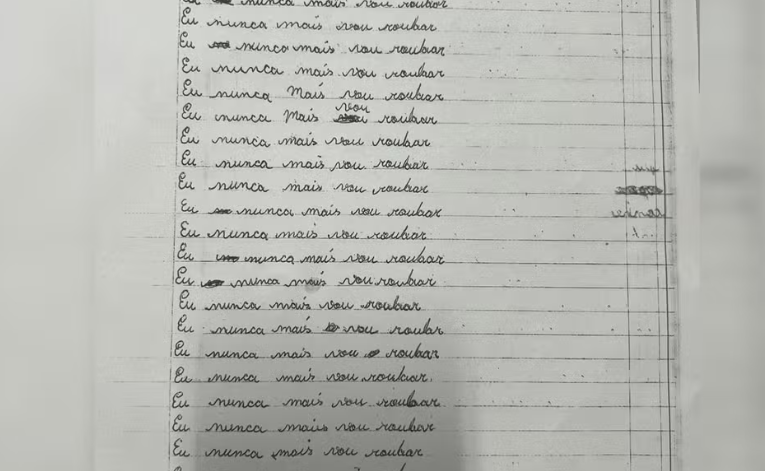 nunca mais vou roubar
Eu nunca mais vou roubar
Eu nunca mais vou roubar
Eu nunca mais vou roubar
Eu nunca Mais vou roubar
vou
Eu nunca Mais roubar
Eu nunca mais vou roubar
Eu nunca mais vou roubar
Eu nunca mais vou roubar
Eu nunca mais vou roubar
Eu nunca mais vou roubar
Eu nunca mais vou roubar
Eu nunca mais vou roubar
Eu nunca mais vou roubar
Eu nunca mais vou roubr
Eu nunca mais vou roubar
Eu nunca mais vou roubar.
Eu nunca mais vou roubar
Eu nunca maius vou roubar
Eu nunca mais vou roubar